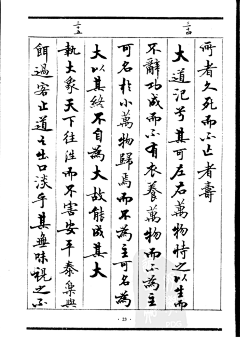 三四
所者久死而不亡者壽
大道氾兮其可左右萬物恃之以生而
不辭功成而不有衣養萬物而不為主
可名於小萬物歸焉而不為主可名為
三五
大以其終不自為大故能成其大
執大象天下往往而不害安平泰樂與
餌過客止道之出口淡乎其無味視之不
· 23 ·